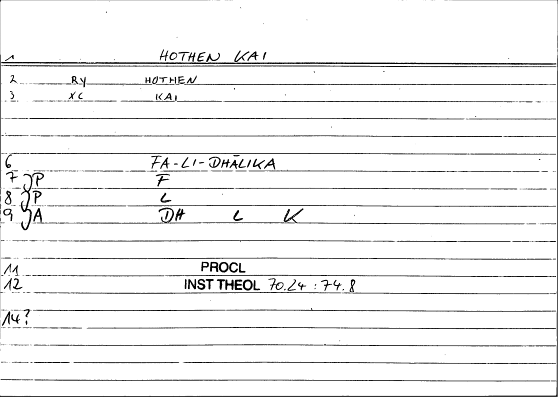 1 HOTHEN KAI
2 RY HOTHEN
3 XC KAI
6 FA-LI-DHĀLIKA
7 P F
8 P L
9 A DH L K
11 PROCL
12 INST THEOL 70.24 : 74.8
14?